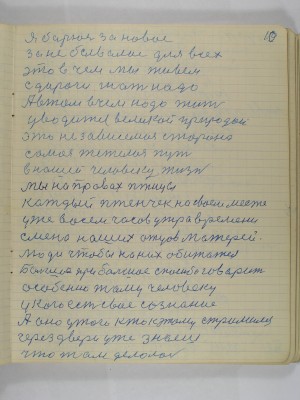 10
Я борюся за новое
за небывалое для всех
это в чем мы живем
с дороги жат надо
А в том в чем надо жит
уводите великой природой
это независимая сторона
самая тяжелая пут
в нашей человеку жизн
мы на правах птицы
каждый птенчек на своем месте
уже восем часов утра времени
смена наших отцов матерей.
Люди чтобы на них обижатся
Большое при большое спасибо говорит
особенно тому человеку
у кого ест свое сознание
А оно у того кто к этому стремился
через двери уже знаеш
что там делолос